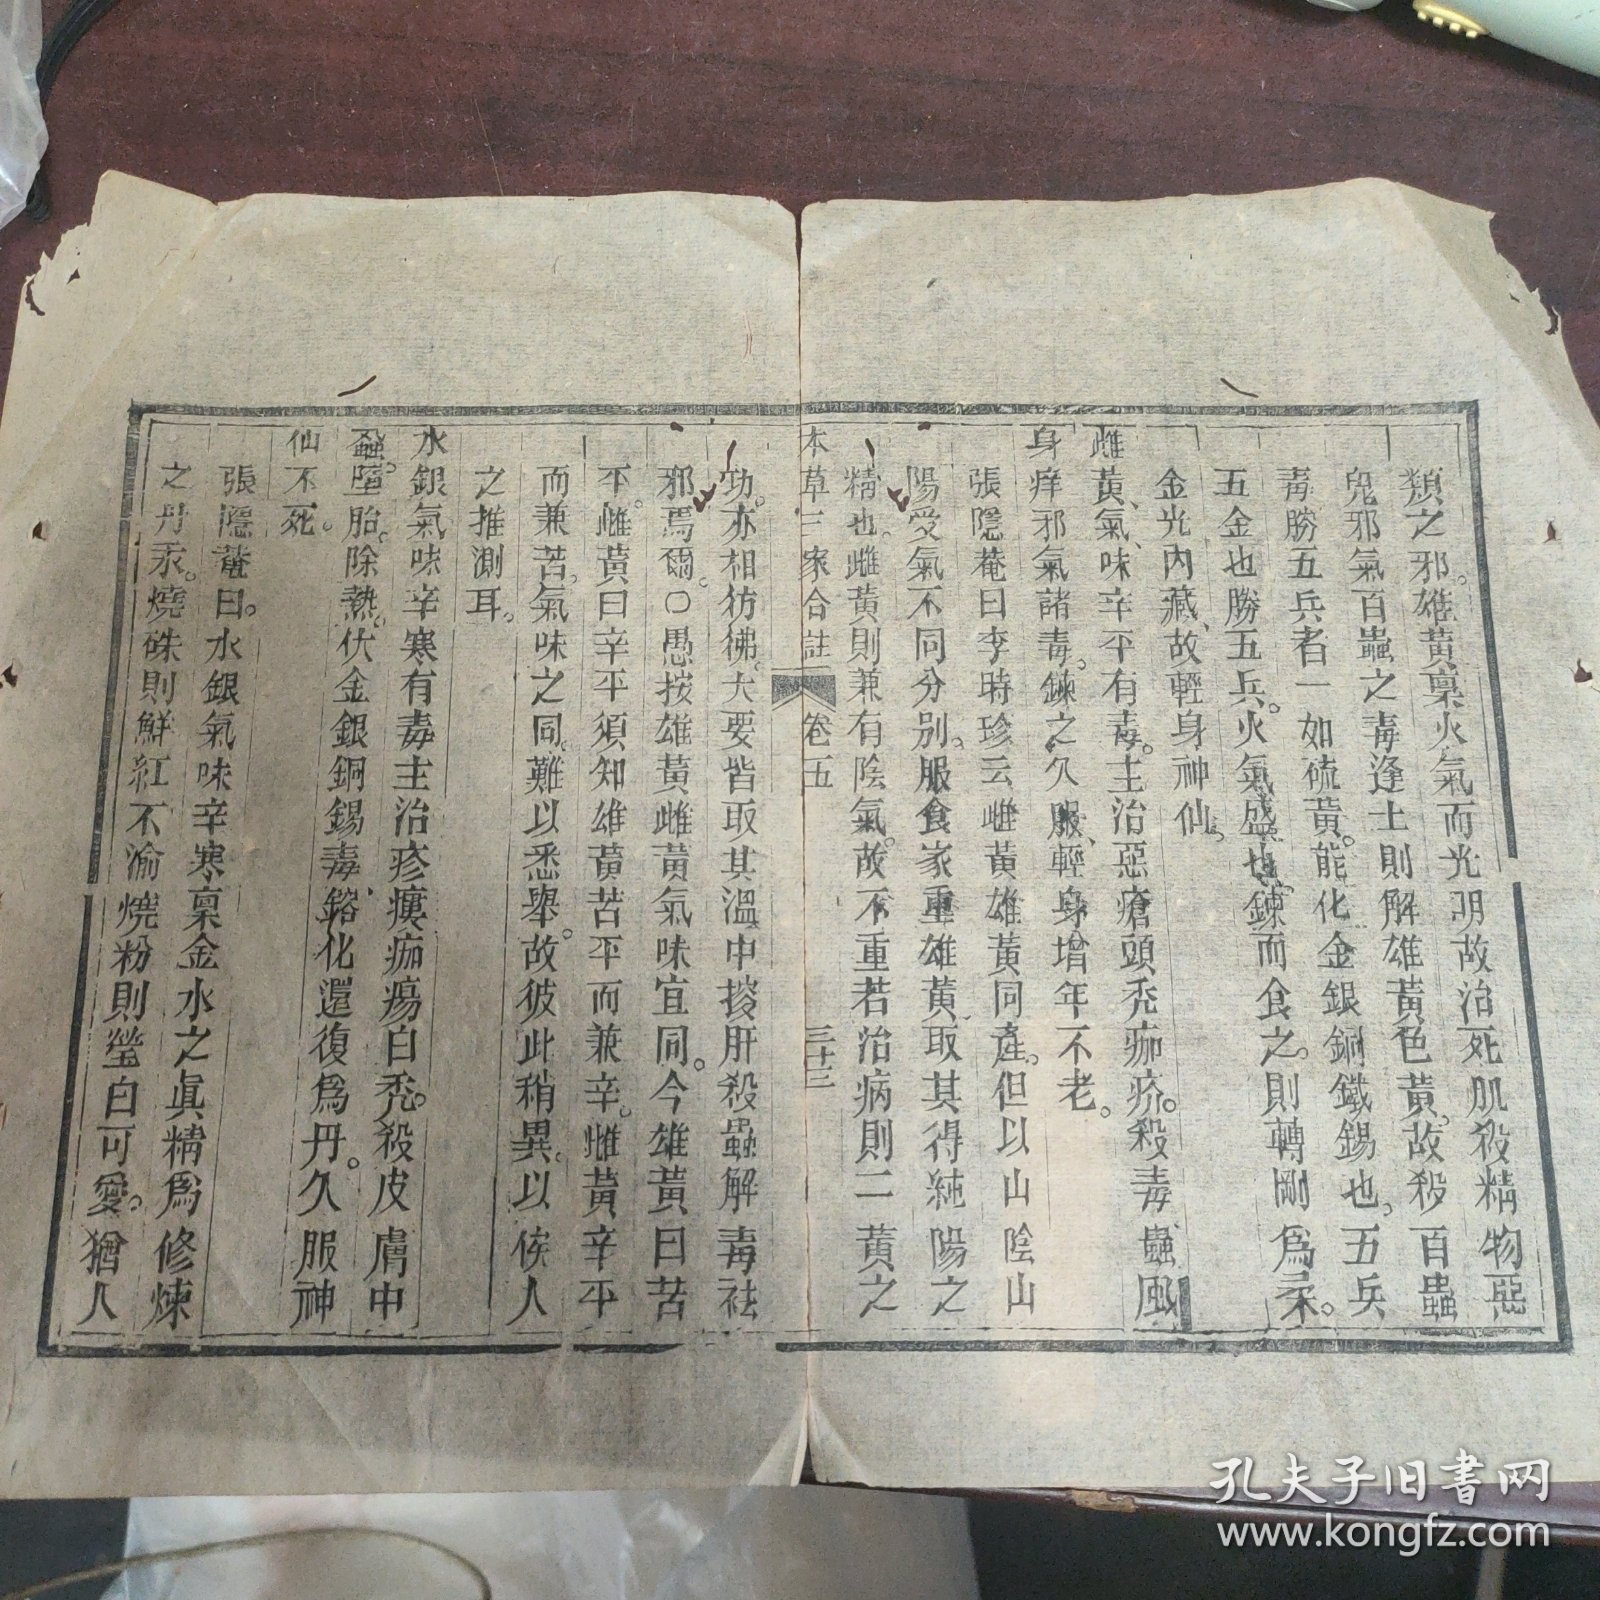 類之邪。雄黃稟火氣而光明故治死肌殺精物惡
鬼邪氣百蟲之毒逢土則解雄黃色黃。故殺百蟲
毒勝五兵者一如硫黃。能化金銀銅鐵錫也。五兵
五金也勝五兵。火氣盛也、鍊而食之。則轉剛爲柔。
金光內藏、故輕身神仙。
雌黃、氣、味辛平有毒。主治惡瘡頭禿痂疥。殺毒蟲風
身痒邪氣諸毒。鍊之久服、輕身增年不老。
張隱菴曰李時珍云雌黃雄黃同產。但以山陰山
陽受氣不同分別。服食家重雄黃、取其得純陽之
精也。雌黃則兼有陰氣。故不重若治病則二黃之
本草三家合註 卷五 三十三
功。亦相彷彿。大要皆取其溫中搜肝殺蟲解毒祛
邪焉爾。○愚按雄黃雌黃氣味宜同。今雄黃曰苦
平。雌黃曰辛平須知雄黃苦平而兼辛。雌黃辛平
而兼苦。氣味之同。難以悉舉。故彼此稍異。以俟人
之推測耳。
水銀氣味辛寒有毒主治疹瘻痂瘍白禿。殺皮膚中
蝨。墮胎。除熱。伏金銀銅錫毒、鎔化還復爲丹。久服神
仙不死。
張隱菴曰。水銀氣味辛寒稟金水之眞精爲修煉
之丹汞。燒硃則鮮紅不渝燒粉則瑩白可愛。猶人
孔夫子旧书网
www.kongfz.com